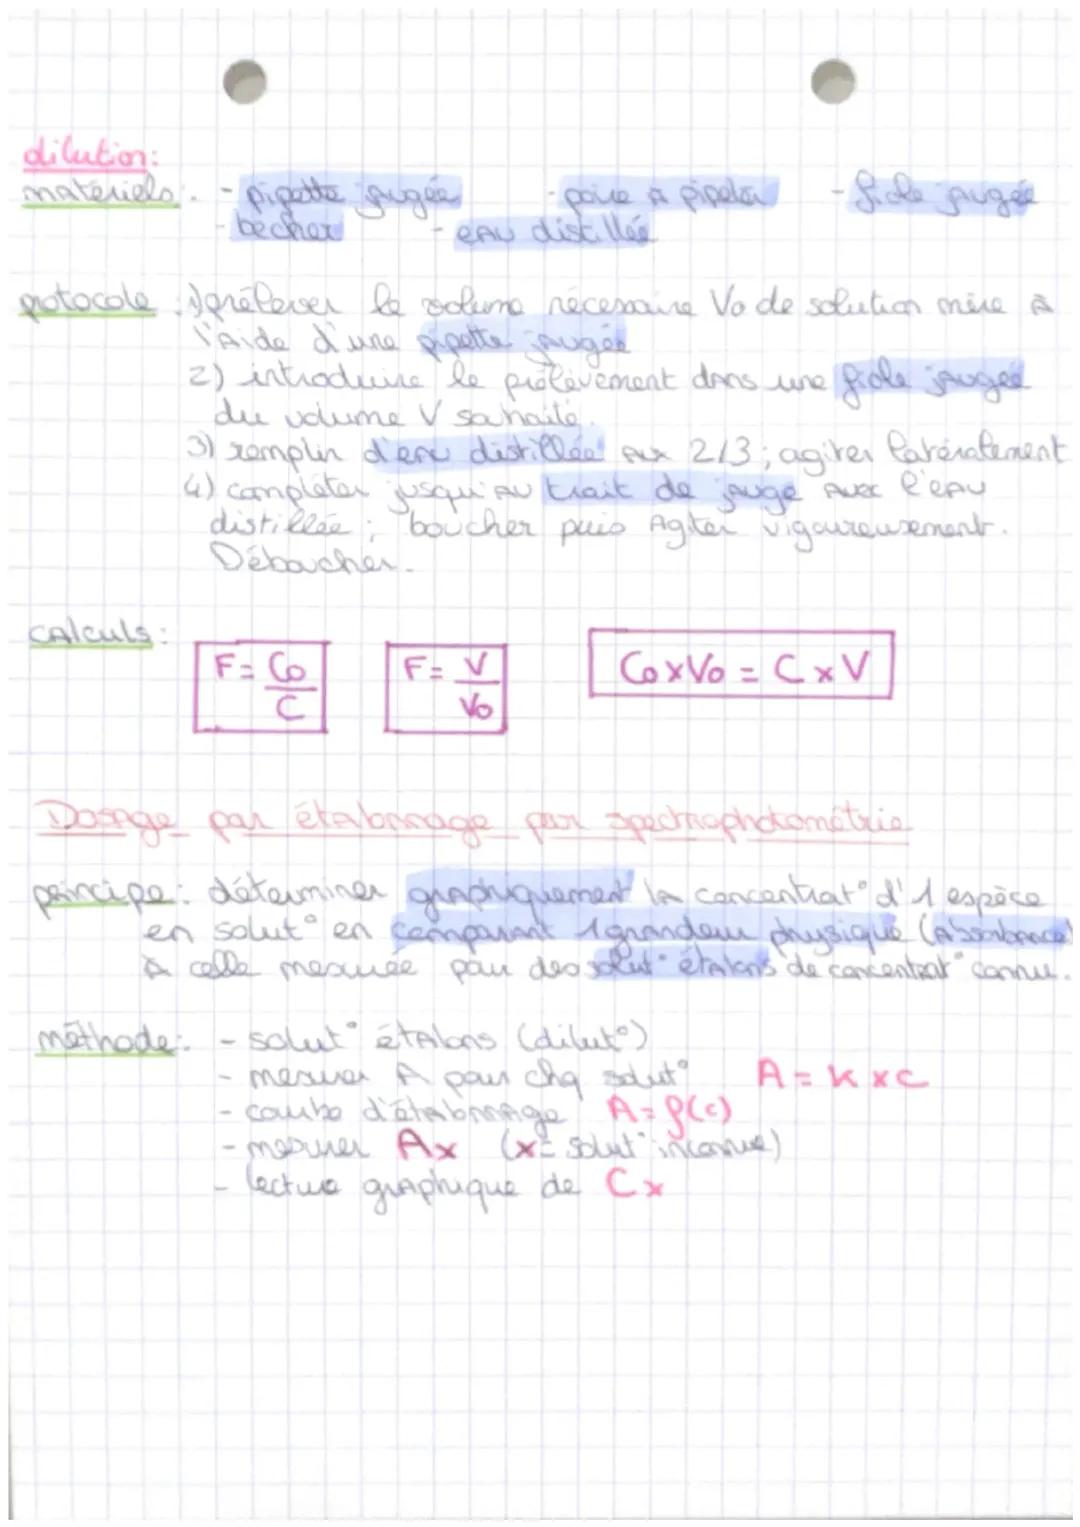 dilution:
matériels: - pipette jaugée - poire à pipeter - fiole jaugée
- bécher - eau distillée
protocole: 1) prélever le volume nécessaire Vo de solution mère à
l'aide d'une pipette jaugée
2) introduire le prélèvement dans une fiole jaugée
du volume V souhaité.
3) remplir d'eau distillée aux 2/3; agiter latéralement
4) compléter jusqu'au trait de jauge avec l'eau
distillée; boucher puis agiter vigoureusement.
Déboucher.
calculs:
F = Co/C F = V/Vo Co x Vo = C x V
Dosage par étalonnage par spectrophotométrie
principe: déterminer graphiquement la concentrat° d'1 espèce
en solut° en comparant 1 grandeur physique (absorbance)
à celle mesurée pour des solut° étalons de concentrat° connu.
méthode: - solut° étalons (dilut°)
- mesurer A pour chq solut° A = k x c
- courbe d'étalonnage A = f(c)
- mesurer Ax (x = solut° inconnue)
- lecture graphique de Cx